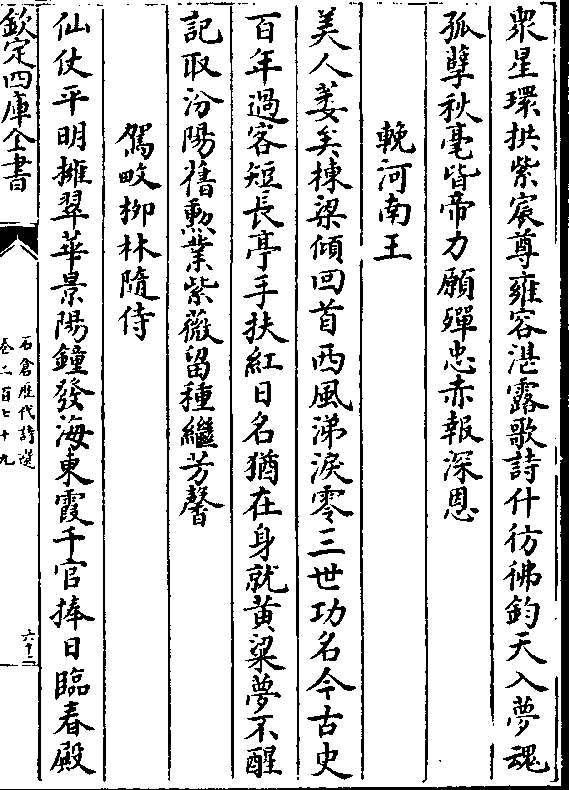 衆星環拱紫宸尊雍容湛露歌詩什彷彿鈞天入夢魂
孤孽秋毫皆帝力願殫忠赤報深恩
輓河南王
美人萎矣棟梁傾回首西風涕淚零三世功名今古史
百年過客短長亭手扶紅日名猶在身就黄粱夢不醒
記取汾陽舊勲業紫薇留種繼芳馨
駕畋柳林隨侍
仙仗平明擁翠華景陽鐘發海東霞千官捧日臨春殿
欽定四庫全書
石倉歴代詩選
卷二百七十九
六十二